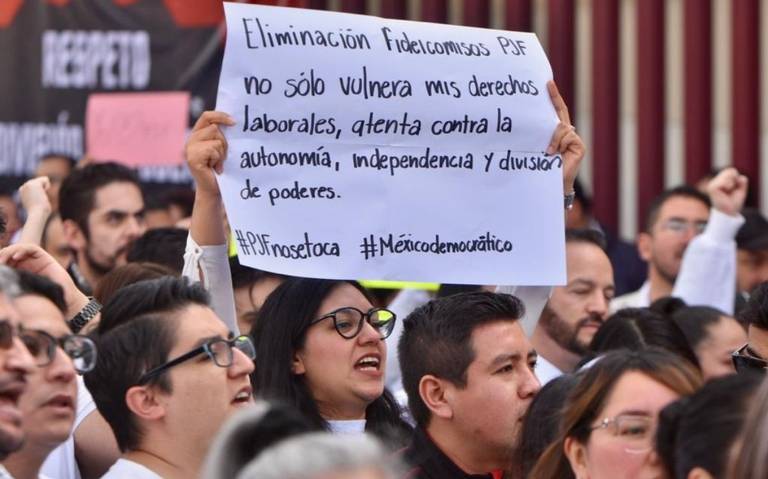 RESPETO
Eliminación Fideicomisos PJF
no sólo vulnera mis derechos
laborales, atenta contra la
autonomía, independencia y división
de poderes.
#PJFnosetoca #Méxicodemocrático